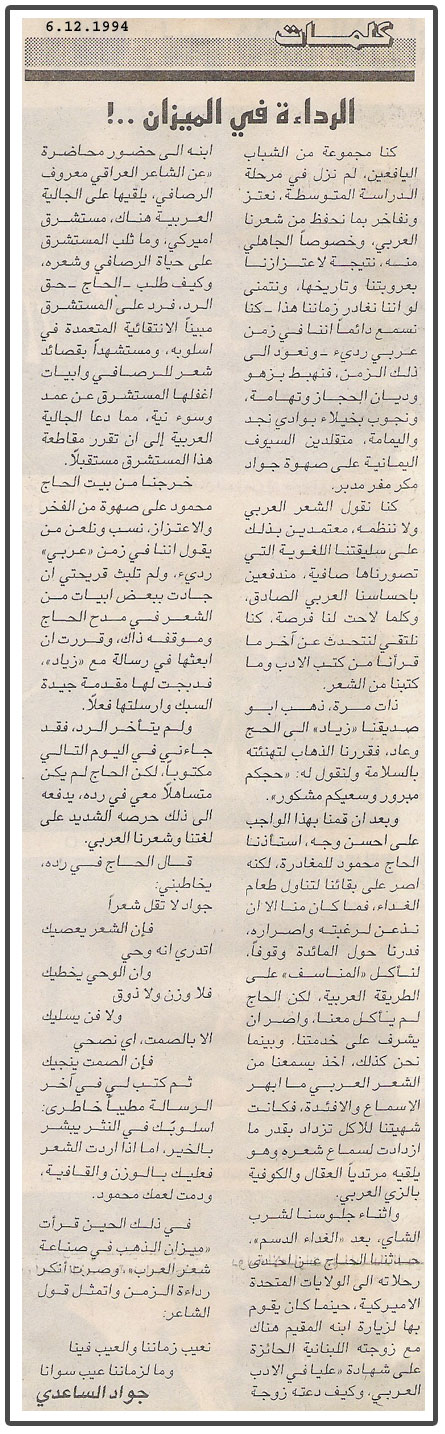 6.12.1994
كلمات
الرداءة في الميزان ..!
كنا مجموعة من الشباب
اليافعين، لم نزل في مرحلة
الدراسة المتوسطة، نعتز
ونفاخر بما نحفظ من شعرنا
العربي، وخصوصاً الجاهلي
منه، نتيجة لاعتزازنا
بعروبتنا وتاريخها، ونتمنى
لو اننا نغادر زماننا هذا ـ كنا
نسمع دائماً اننا في زمن
عربي رديء ـ ونعود الى
ذلك الزمن، فنهبط بزهو
وديان الحجاز وتهامة،
ونجوب بخيلاء بوادي نجد
واليمامة، متقلدين السيوف
اليمانية على صهوة جواد
مكر مفر مدبر.
كنا نقول الشعر العربي
ولا ننظمه، معتمدين بذلك
على سليقتنا اللغوية التي
تصورناها صافية، مندفعين
باحساسنا العربي الصادق،
وكلما لاحت لنا فرصة، كنا
نلتقي لنتحدث عن آخر ما
قرأنا من كتب الادب وما
كتبنا من الشعر.
ذات مرة، ذهب ابو
صديقنا «زياد» الى الحج
وعاد، فقررنا الذهاب لتهنئته
بالسلامة ولنقول له: «حجكم
مبرور وسعيكم مشكور».
وبعد ان قمنا بهذا الواجب
على احسن وجه، استأذنا
الحاج محمود للمغادرة، لكنه
اصر على بقائنا لتناول طعام
الغداء، فما كان منا الا ان
نذعن لرغبته واصراره،
فدرنا حول المائدة وقوفاً،
لنأكل «المناسف» على
الطريقة العربية، لكن الحاج
لم يأكل معنا، واصر ان
يشرف على خدمتنا. وبينما
نحن كذلك، اخذ يسمعنا من
الشعر العربي ما ابهر
الاسماع والافئدة، فكانت
شهيتنا للأكل تزداد بقدر ما
ازدادت لسماع شعره وهو
يلقيه مرتدياً العقال والكوفية
بالزي العربي.
واثناء جلوسنا لشرب
الشاي، بعد «الغداء الدسم»،
حدثنا الحاج عن احدى
رحلاته الى الولايات المتحدة
الاميركية، حينما كان يقوم
بها لزيارة ابنه المقيم هناك
مع زوجته اللبنانية الحائزة
على شهادة «عليا في الادب
العربي، وكيف دعته زوجة
ابنه الى حضور محاضرة
«عن الشاعر العراقي معروف
الرصافي، يلقيها على الجالية
العربية هناك، مستشرق
اميركي، وما ثلب المستشرق
على حياة الرصافي وشعره،
وكيف طلب ـ الحاج ـ حق
الرد، فرد على المستشرق
مبيناً الانتقائية المتعمدة في
اسلوبه، ومستشهداً بقصائد
شعر للرصافي وابيات
اغفلها المستشرق عن عمد
وسوء نية، مما دعا الجالية
العربية إلى ان تقرر مقاطعة
هذا المستشرق مستقبلاً.
خرجنا من بيت الحاج
محمود على صهوة من الفخر
والاعتزاز، نسب ونلعن من
يقول اننا في زمن «عربي»
رديء، ولم تلبث قريحتي ان
جادت ببعض ابيات من
الشعر في مدح الحاج
وموقفه ذاك، وقررت ان
ابعثها في رسالة مع «زياد»،
فدبجت لها مقدمة جيدة
السبك وارسلتها فعلاً.
ولم يتأخر الرد، فقد
جاءني في اليوم التالي
مكتوباً، لكن الحاج لم يكن
متساهلاً معي في رده، يدفعه
الى ذلك حرصه الشديد على
لغتنا وشعرنا العربي.
قال الحاج في رده،
يخاطبني:
جواد لا تقل شعراً
فإن الشعر يعصيك
اتدري انه وحي
وان الوحي يخطيك
فلا وزن ولا ذوق
ولا فن يسليك
الا بالصمت، اي نصحي
فإن الصمت ينجيك
ثم كتب لي في آخر
الرسالة مطيباً خاطري:
اسلوبك في النثر يبشر
بالخير، اما اذا اردت الشعر
فعليك بالوزن والقافية،
ودمت لعمك محمود.
في ذلك الحين قرأت
«ميزان الذهب في صناعة
شعر العرب»، وصرت أنكر
رداءة الزمن واتمثل قول
الشاعر:
نعيب زماننا والعيب فينا
وما لزماننا عيب سوانا
جواد الساعدي